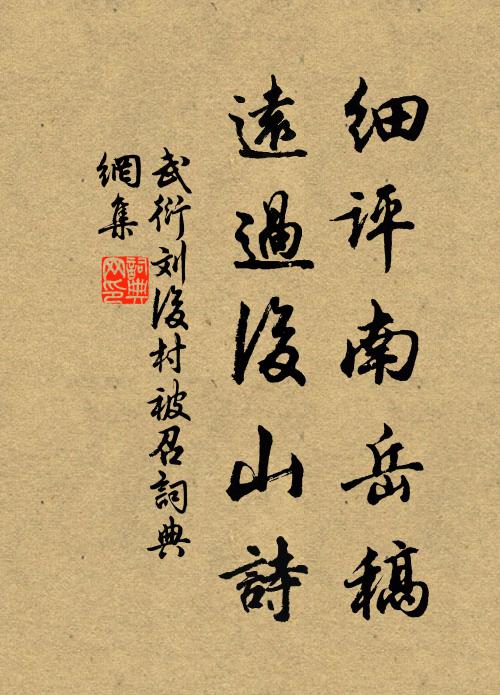 细评南岳稿
遠過後山詩
武衍刘後村被召詞典
網集
詞典網印